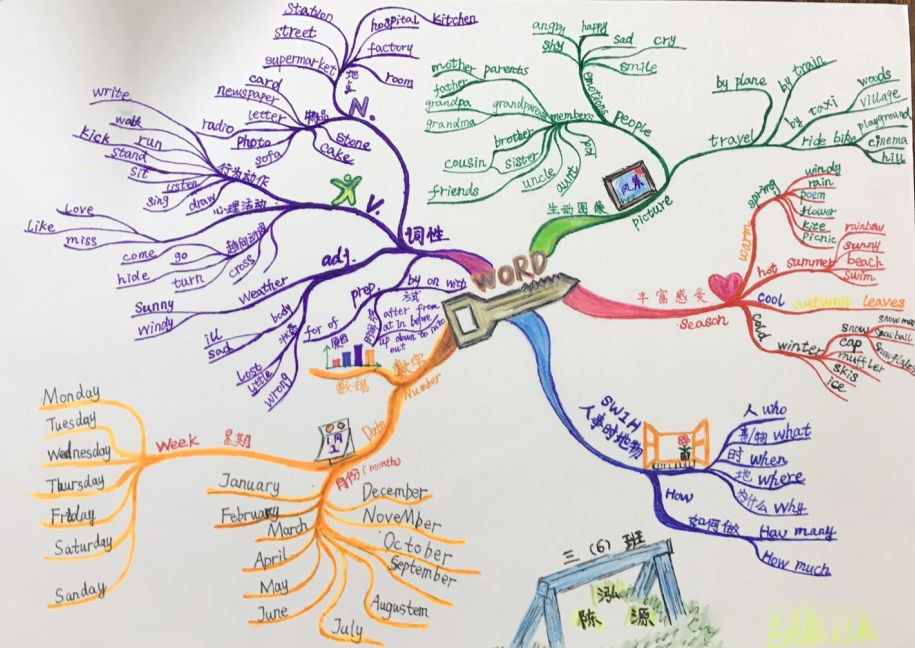 WORD
词性
N.
地点
Station
street
supermarket
hospital
Kitchen
factory
room
物品
card
newspaper
letter
radio
photo
sofa
stone
cake
V.
行为动作
write
walk
kick
run
stand
sit
listen
sing
draw
心理活动
Love
Like
miss
趋向动词
come
go
hide
turn
cross
adj.
Weather
Sunny
windy
body
ill
sad
状态
Lost
little
wrong
prep.
by on with
方式
for of
原因
after from
at in before
up down to into
out
生动图像
picture
风景
people
emotions
angry
happy
shy
sad
cry
smile
members
mother
parents
father
grandpa
grandparents
grandma
brother
cousin
sister
uncle
aunt
friends
travel
by plane
by train
by taxi
ride bike
woods
village
playground
cinema
hill
丰富感受
season
warm
spring
windy
rain
poem
flower
kite
picnic
hot
summer
rainbow
sunny
beach
swim
cool
autumn
leaves
cold
winter
snow
snowball
cap
muffler
skis
ice
5W1H
人事时地物
人 who
事/物 what
时 when
地 where
为什么 why
How
如何做
How many
How much
数字
Number
数据
Date
Week 星期
Monday
Tuesday
Wednesday
Thursday
Friday
Saturday
Sanday
月份(month)
January
February
March
April
May
June
July
Augustem
September
October
NoveMber
December
三(6)班
陈泓源